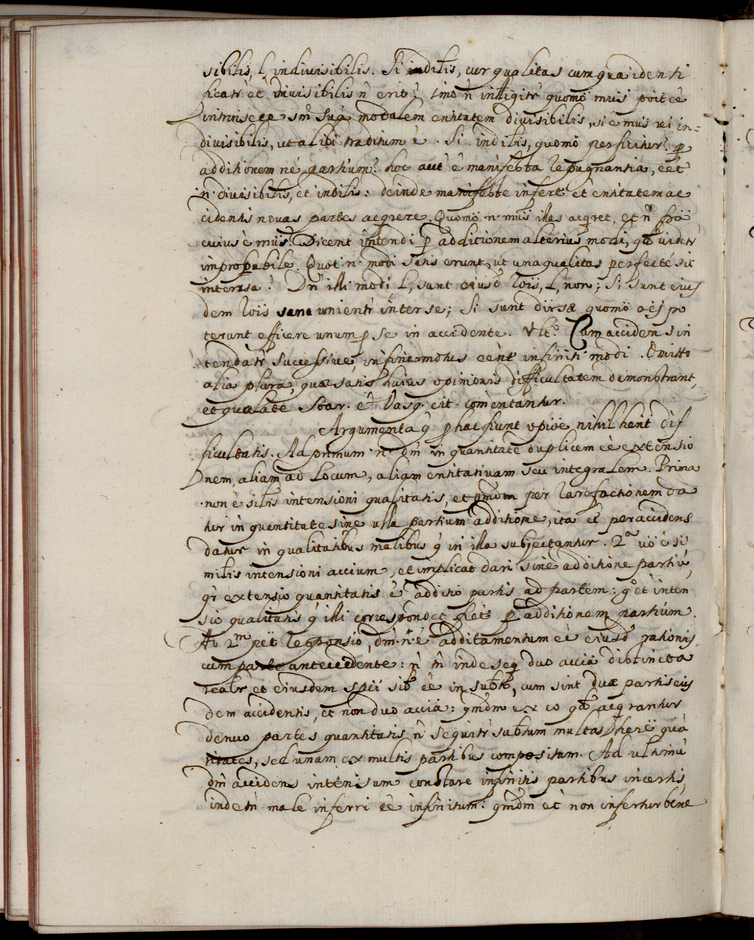 sibilis, l, indiuisibilis. Si indilis, cur qualitas cum qua identi
ficatr̃ et diuisibilis ñ erit? Imo ñ intligitr̃ quomõ mũs poit eẽ
intrinsece sm̃ suã modalem entitatem diuisibilis, si e mũs rei in=
diuisibilis, ut alibi traditum ẽ. Si indilis, quomõ perficitur p
additionem ñe partium? hoc aut̃ ẽ manifesta repugnantia, eẽ et
ĩdiuisibilis, et indilis: deinde manifeste infert et entitatem ac
cidentis novas partes acqrere. Quomõ ñ mũs illas acqret, et ñ
cuius ẽ mũs? Dicent intendi p additionem alterius modi, qd̃ videtr̃
improbabile. Quot ñ modi satis erunt, ut una qualitas perfecte sit
intensa? Dñ illi modi l, sunt eiusd̃ rõis, l, non; si sunt eius
dem rõis sane unientr̃ inter se; si sunt diversæ quomõ
terunt efficere unum p se in accidente. Vlt.º Cum accidens in
tendatr̃ successive, in fine motus eẽnt infiniti modi. Omitto
alia plura, quæ satis huius opinionis difficultatem demonstrant,
et qualate Soar. et Vasq. cit. comentantur.
Argumenta q̃ p hac fiunt opiõe, nihil hent dif
ficultatis. Ad primum ñ dm̃ in quantitate duplicem eẽ extensio
nem, aliam ad locum, aliam entitativam seu integralem. Prima
non ẽ silis intensioni qualitatis, et qm̃dm̃ per rarefactionem da
tur in quantitate sine ulla partium additione, ita et per accidens
datur in qualitatibus malibus q̃ in illa subjectantur. 2.ª võ ẽ si
milis intensioni accium, et implicat dari sine additione partiũ,
qr̃ extensio quantitatis ẽ additio partis ad partem: gº et inten
sio qualitatis q̃ illi correspondet fiet p additionem partium.
Ad 2.m pẽt responsio, dm̃ ñ ẽ additamentum eẽ eiusd̃ rationis
cum parte antecedente: ñ tñ inde seq̃ duo accia distincta
realr̃ et eiusdem spẽi sib̃ eẽ in subto, cum sint duæ partes eius
dem accidentis, et non duo accia: qm̃dm̃ ex eo qd̃ acqrantur
denuo partes quantitatis ñ sequitr̃ subtum multas here quã
titates, sed unam ex multis partibus compositum. Ad ultimũ
dm̃ accidens intensum constare infinitis partibus incertis,
inde tñ male inferri eẽ infinitum: qm̃dm̃ et non infertur bene